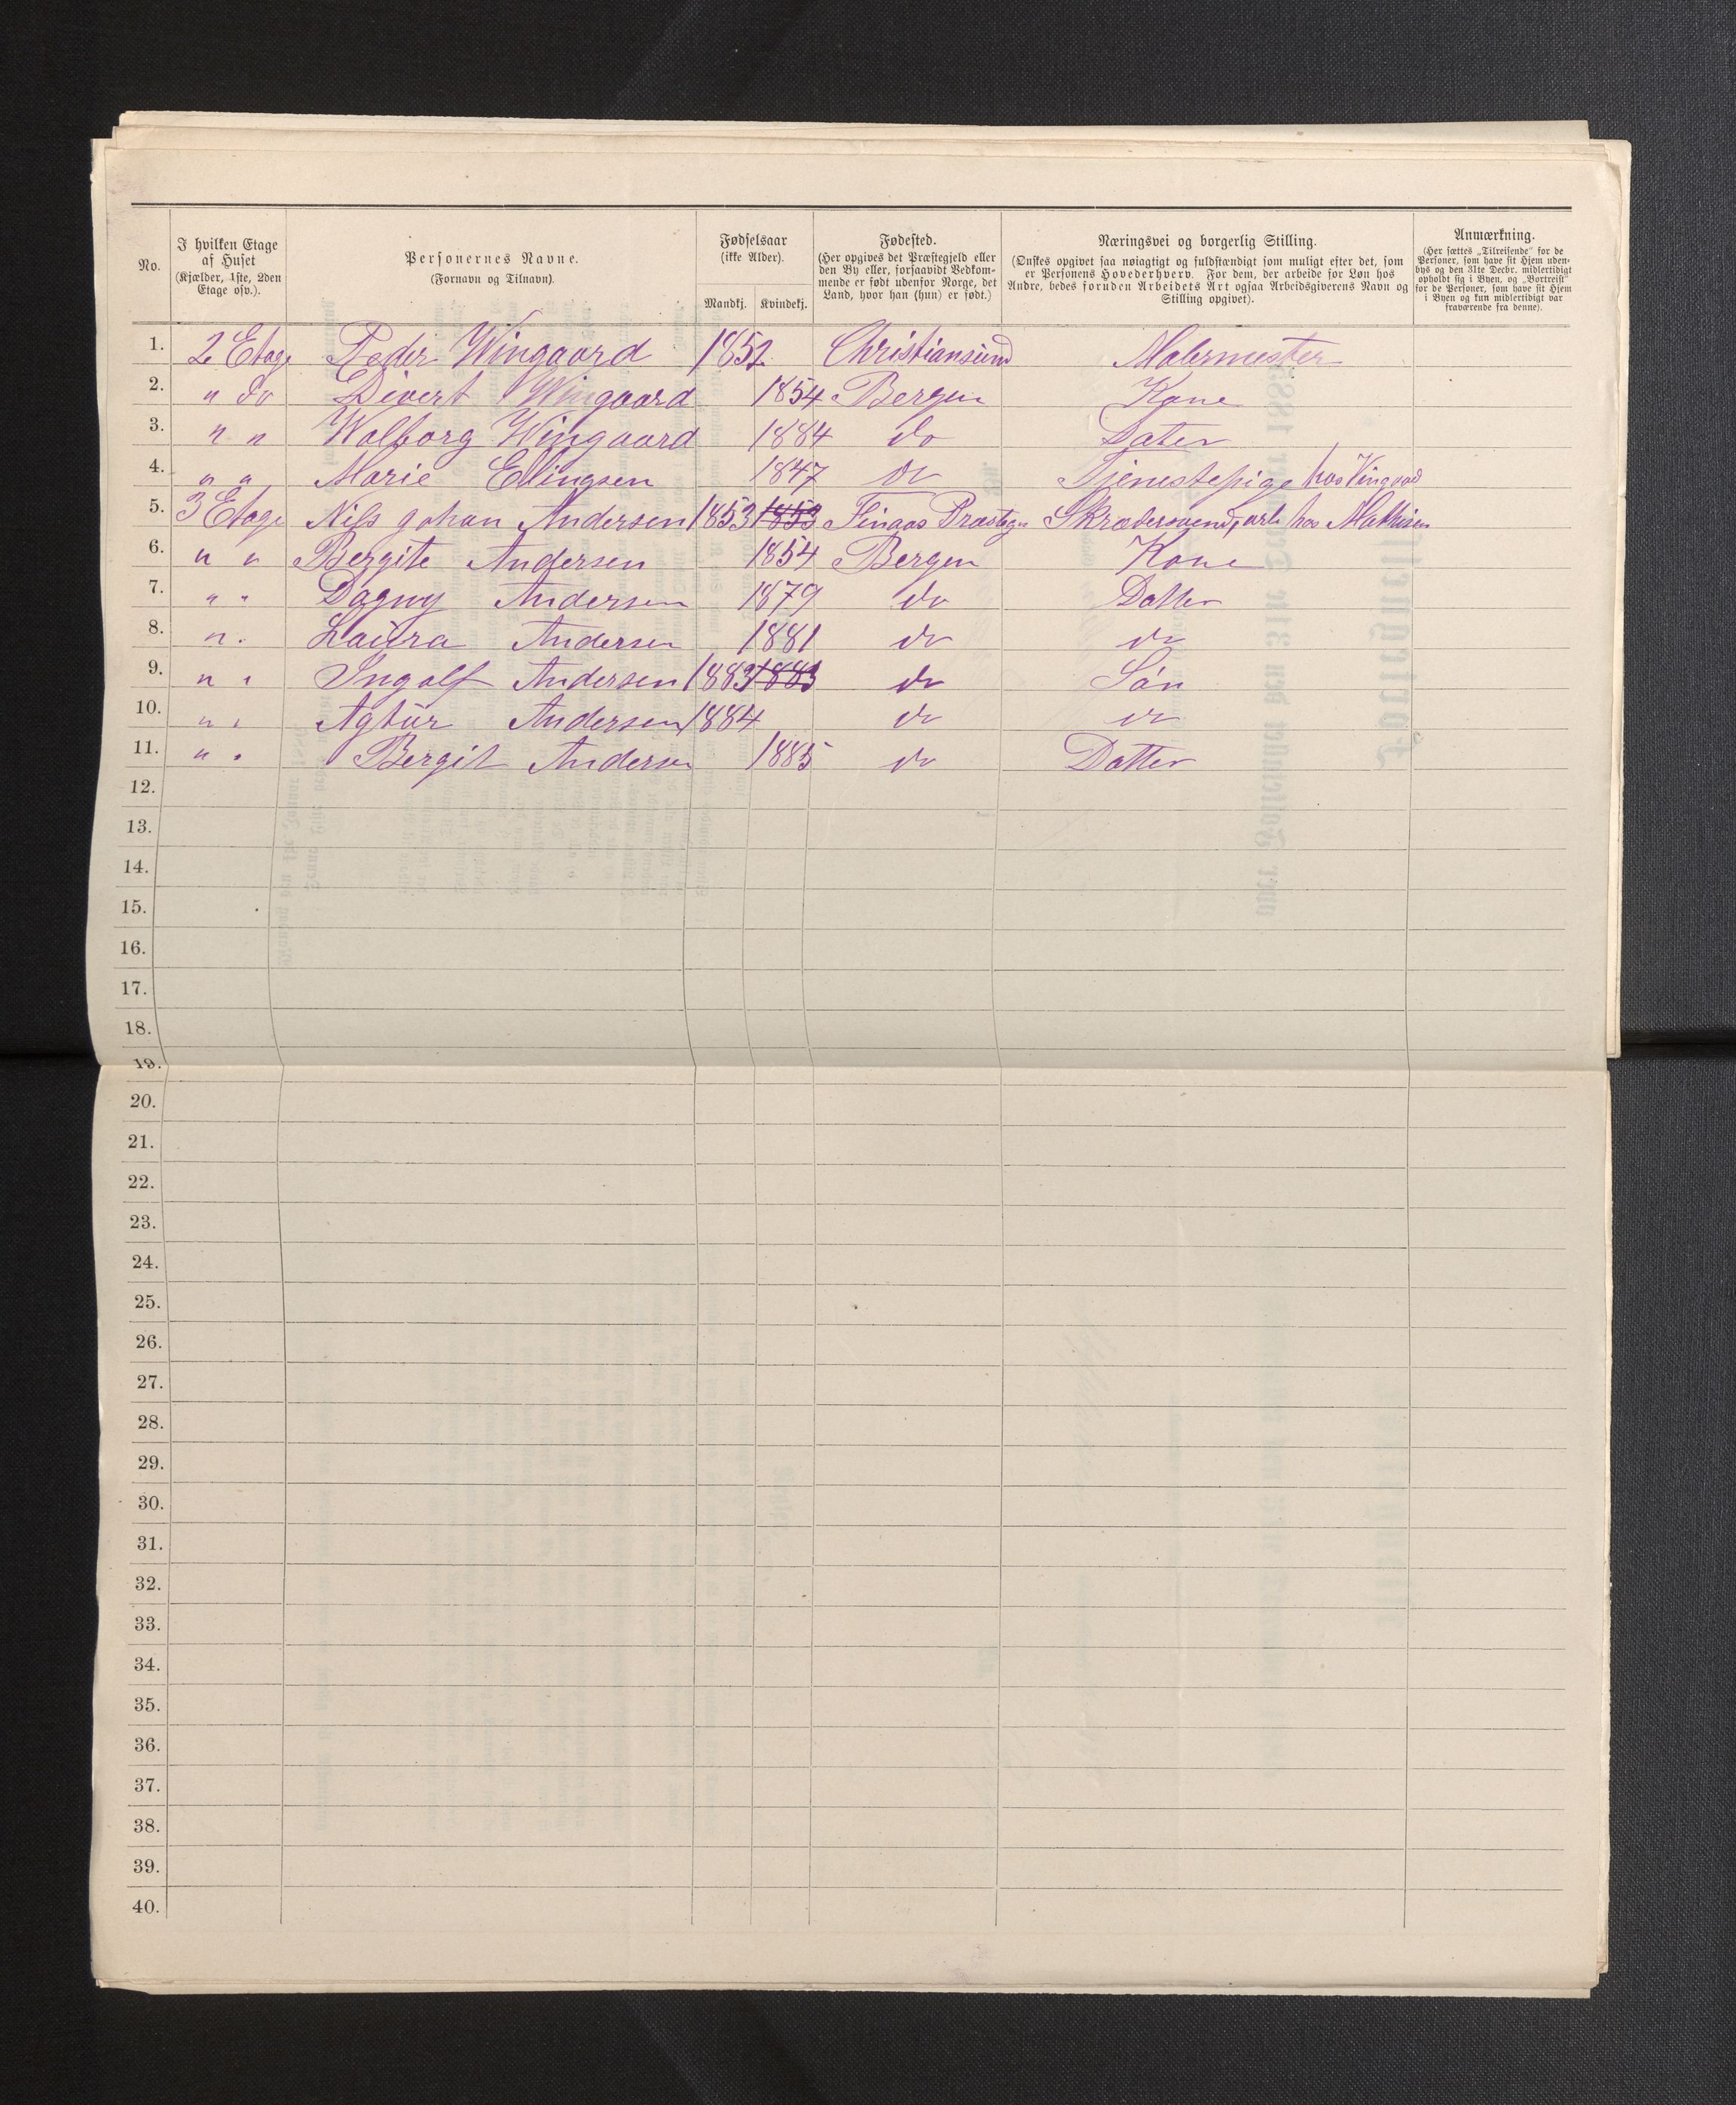 No.
I hvilken Etage af Huset (Kjælder, 1ste, 2den Etage osv.).
Personernes Navne. (Fornavn og Tilnavn).
Fødselsaar (ikke Alder).
Mandkj. Kvindekj.
Fødested. (Her opgives det Præstegjeld eller den By eller, forsaavidt Vedkommende er født udenfor Norge, det Land, hvor han (hun) er født.)
Næringsvei og borgerlig Stilling. (Ønskes opgivet saa nøiagtigt og fuldstændigt som muligt efter det, som er Personens Hovederhverv. For dem, der arbeide for Løn hos Andre, bedes foruden Arbeidets Art ogsaa Arbeidsgiverens Navn og Stilling opgivet).
Anmærkning. (Her sættes „Tilreisende" for de Personer, som have sit Hjem udenbys og den 31te Decbr. midlertidigt opholdt sig i Byen, og „Bortreist" for de Personer, som have sit Hjem i Byen og kun midlertidigt var fraværende fra denne).
1. 2 Etage Peder Wingaard 1852 Christiansund Malermester
2. " do Divert Wingaard 1854 Bergen Kone
3. " " Wolborg Wingaard 1884 do Dater
4. " " Marie Ellingsen 1847 do Tjenestepige hos Vingaad
5. 3 Etage Nils Johan Andersen 1853 1853 Finaas Præsteg Skrædersvend, arb hos Mathisen
6. " " Bergite Andersen 1854 Bergen Kone
7. " " Dagny Andersen 1879 do Datter
8. " " Laura Andersen 1881 do do
9. " " Ingolf Andersen 1883 1883 do Søn
10. " " Agtur Andersen 1884 do do
11. " " Bergit Andersen 1885 do Datter
12.
13.
14.
15.
16.
17.
18.
19.
20.
21.
22.
23.
24.
25.
26.
27.
28.
29.
30.
31.
32.
33.
34.
35.
36.
37.
38.
39.
40.